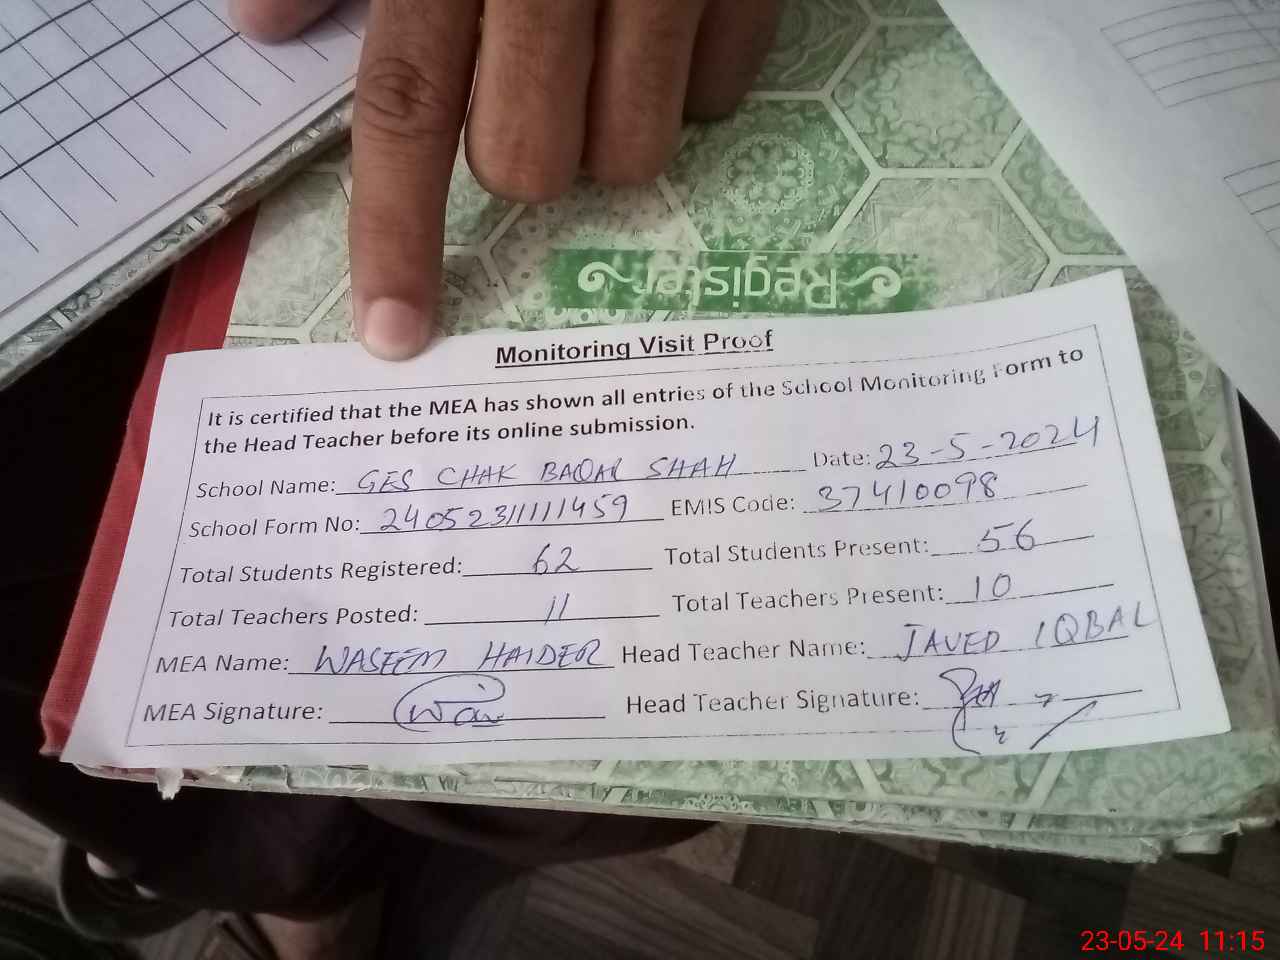 Register
Monitoring Visit Proof
It is certified that the MEA has shown all entries of the School Monitoring Form to
the Head Teacher before its online submission.
School Name: GES CHAK BAQAR SHAH Date: 23-5-2024
School Form No: 24052311111459 EMIS Code: 37410098
Total Students Registered: 62 Total Students Present: 56
Total Teachers Posted: 11 Total Teachers Present: 10
MEA Name: WASEEM HAIDER Head Teacher Name: JAVED IQBAL
MEA Signature: Head Teacher Signature:
23-05-24 11:15